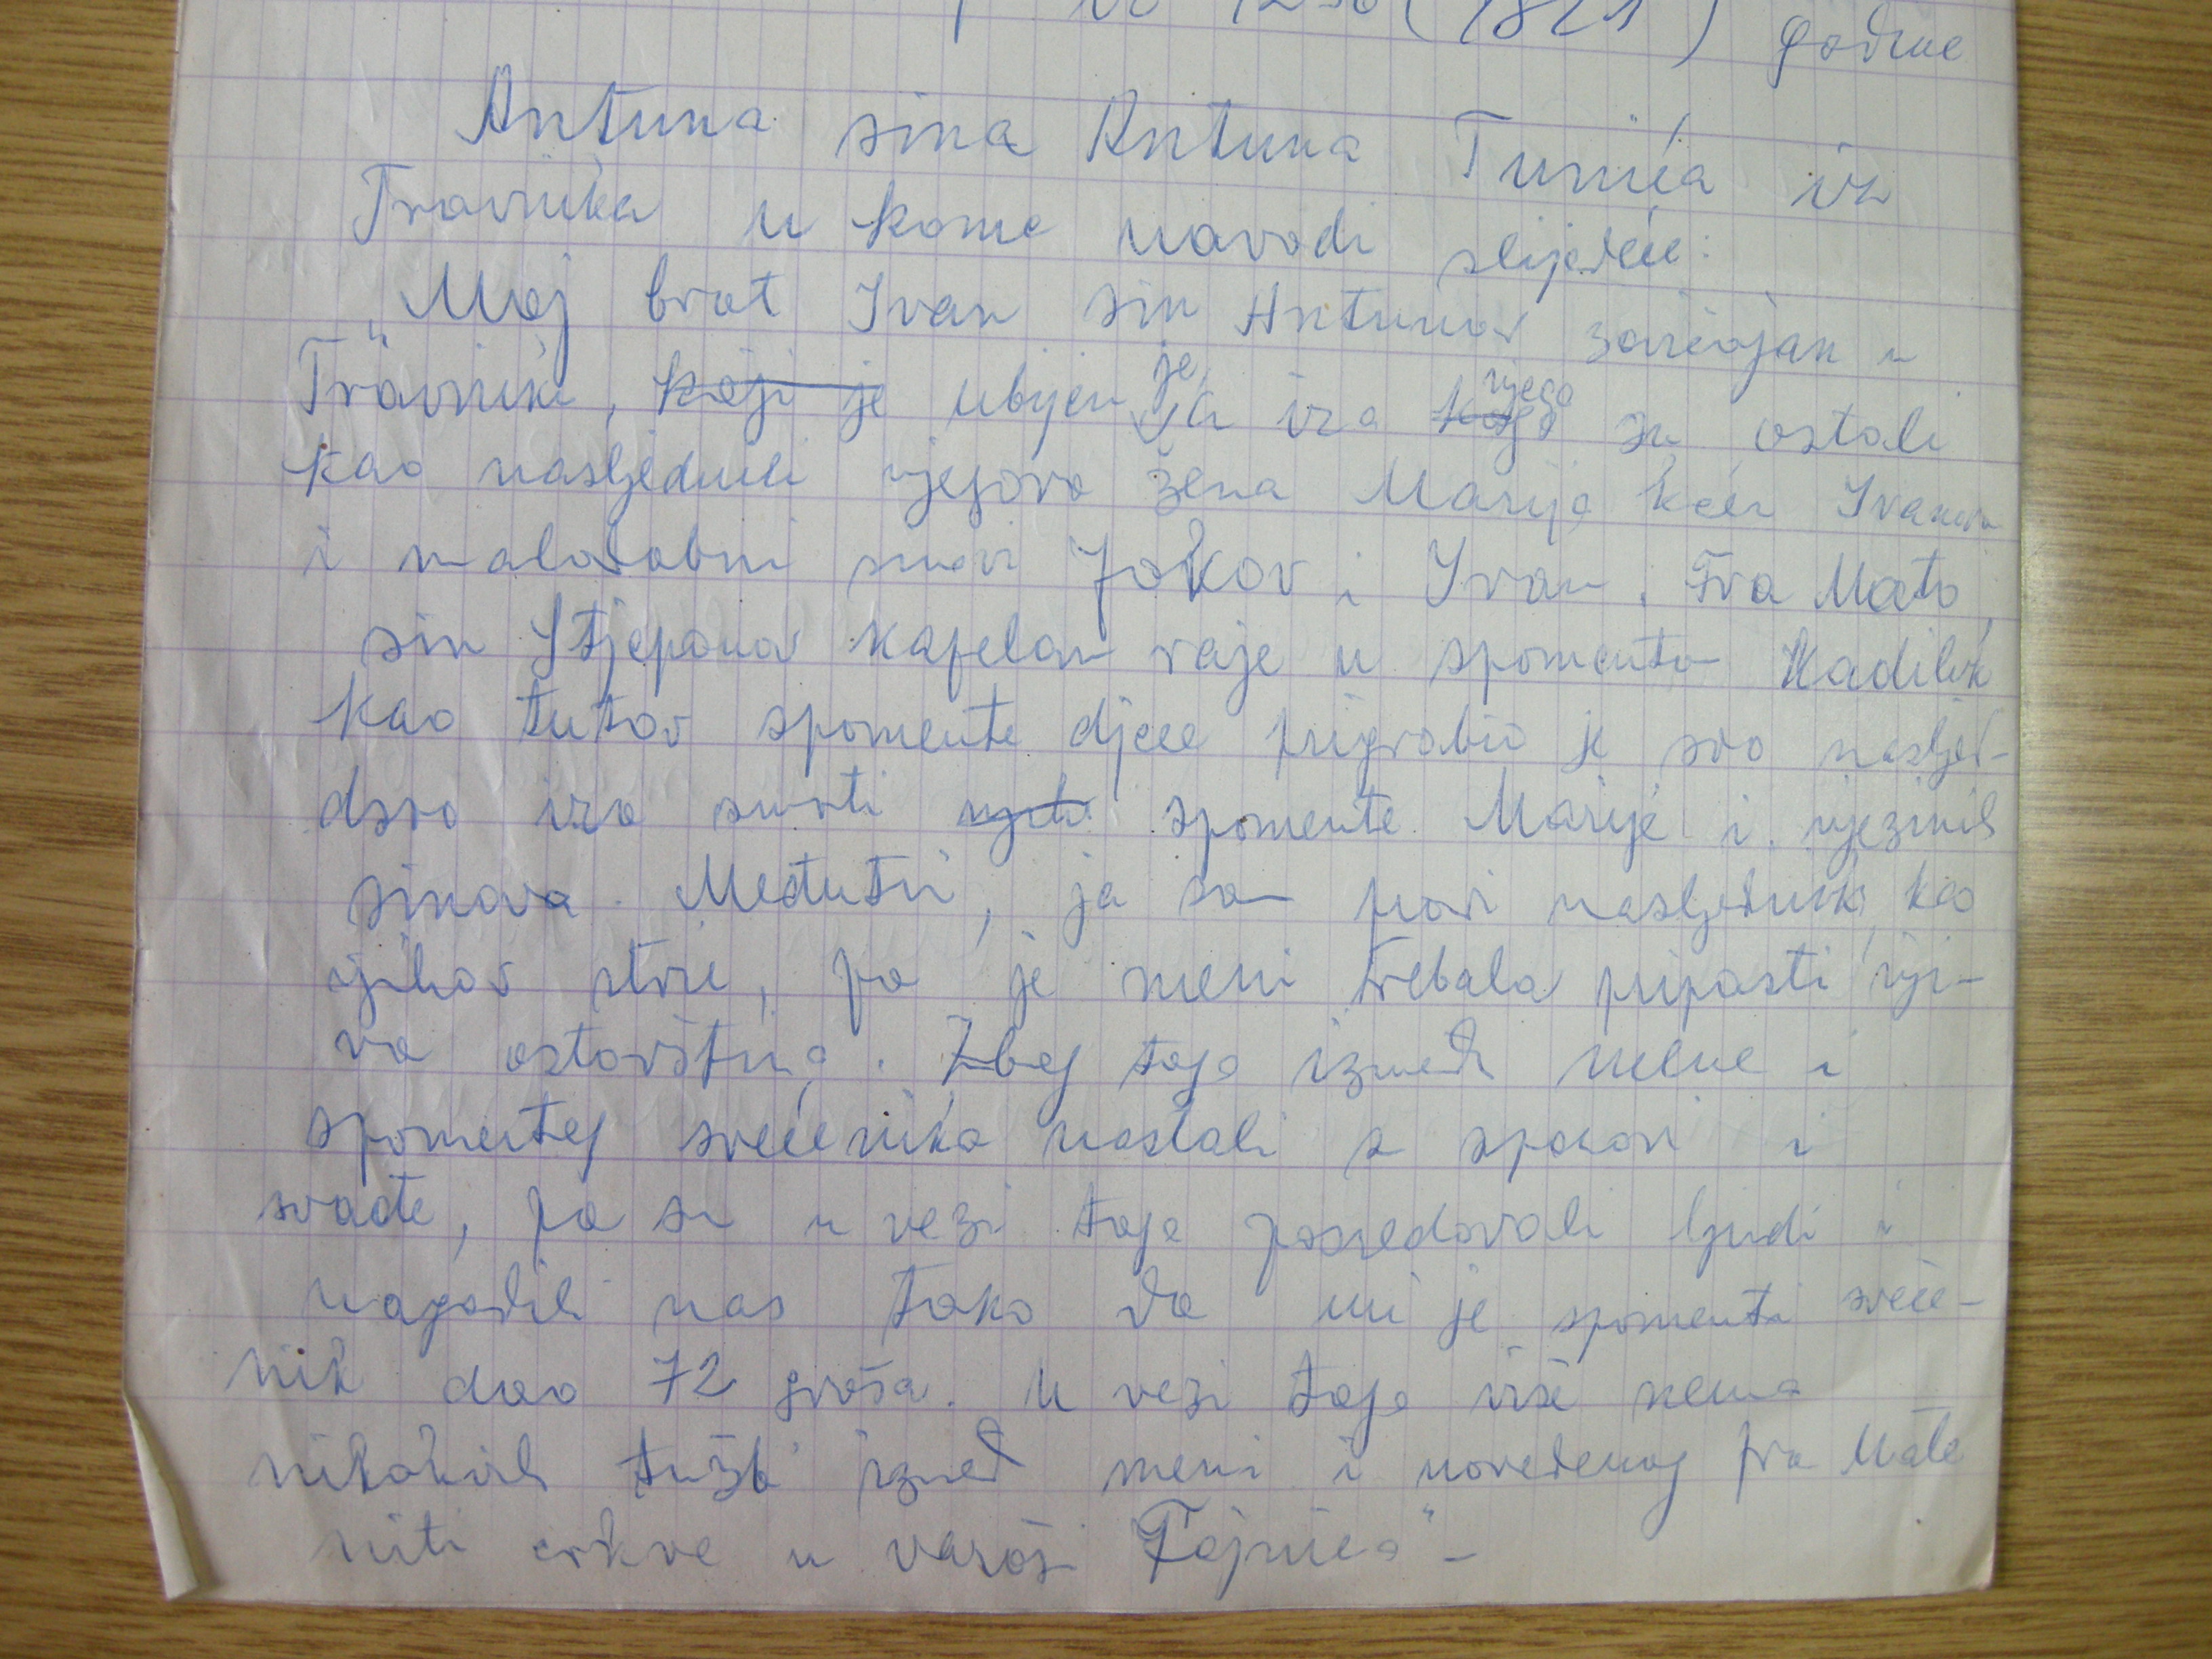 1236 (1821) godine
Antuna sina Antuna Tunića iz
Travnika u kome navodi slijedeće:
„Moj brat Ivan sin Antunov nastanjen u
Travniku, koji je ubijen je, a iza njega su ostali
kao nasljednici njegova žena Marija kćer Ivanova
i malodobni sinovi Jakov i Ivan. Fra Mato,
sin Stjepanov kapelan raje u spomenutom kadiluk
kao tutor spomente djece prigrabio je svo nasljed-
dsvo iza smrti spomente Marije i njezinih
sinova. Međutim, ja sam pravi nasljednik, kao
njihov stric, pa je meni trebala pripasti nji-
va ostavština. Zbog toga između mene i
spomentog svećenika nastali su sporovi i
svađe, pa su u vezi toga posredovali ljudi i
nagodili nas tako da mi je spomenti sveće-
nik dao 72 groša. U vezi toga više nema
nikakvih tužbi između meni i navedenog fra Mate
niti crkve u varoši Fojnica" -